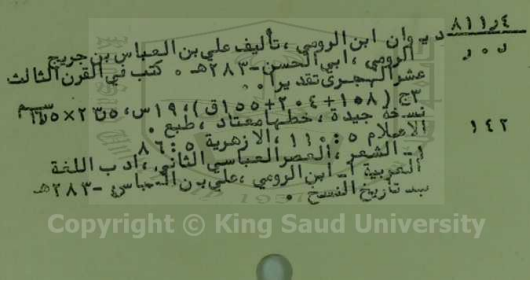 ٨١١ر٤
د٠ر
ديوان ابن الرومي، تأليف علي بن العباس بن جريج
الرومي، ابي الحسن -٢٨٣هـ. كتب في القرن الثالث
عشر الهجري تقديرا.
٣ج (١٥٨+٢٠٤+١٥٥ق)، ١٩س، سم
١٤٢
نسخة جيدة، خطها معتاد، طبع.
الأعلام ٥: ١١٠، الازهرية ٥: ٨٦
١- الشعر، العصر العباسي الثاني، ادب اللغة
العربية أ- ابن الرومي، علي بن العباس -٢٨٣هـ
ب- تاريخ النسخ.
Copyright © King Saud University